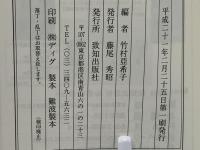 平成二十一年二月二十五日第一刷発行
編者 竹村亞希子
発行者 藤尾秀昭
発行所 致知出版社
〒107-0062 東京都港区南青山六の一の二十三
TEL(〇三)三四〇九-五六三二
印刷 ㈱ディグ 製本 難波製本
落丁・乱丁はお取替え致します。
(検印廃止)